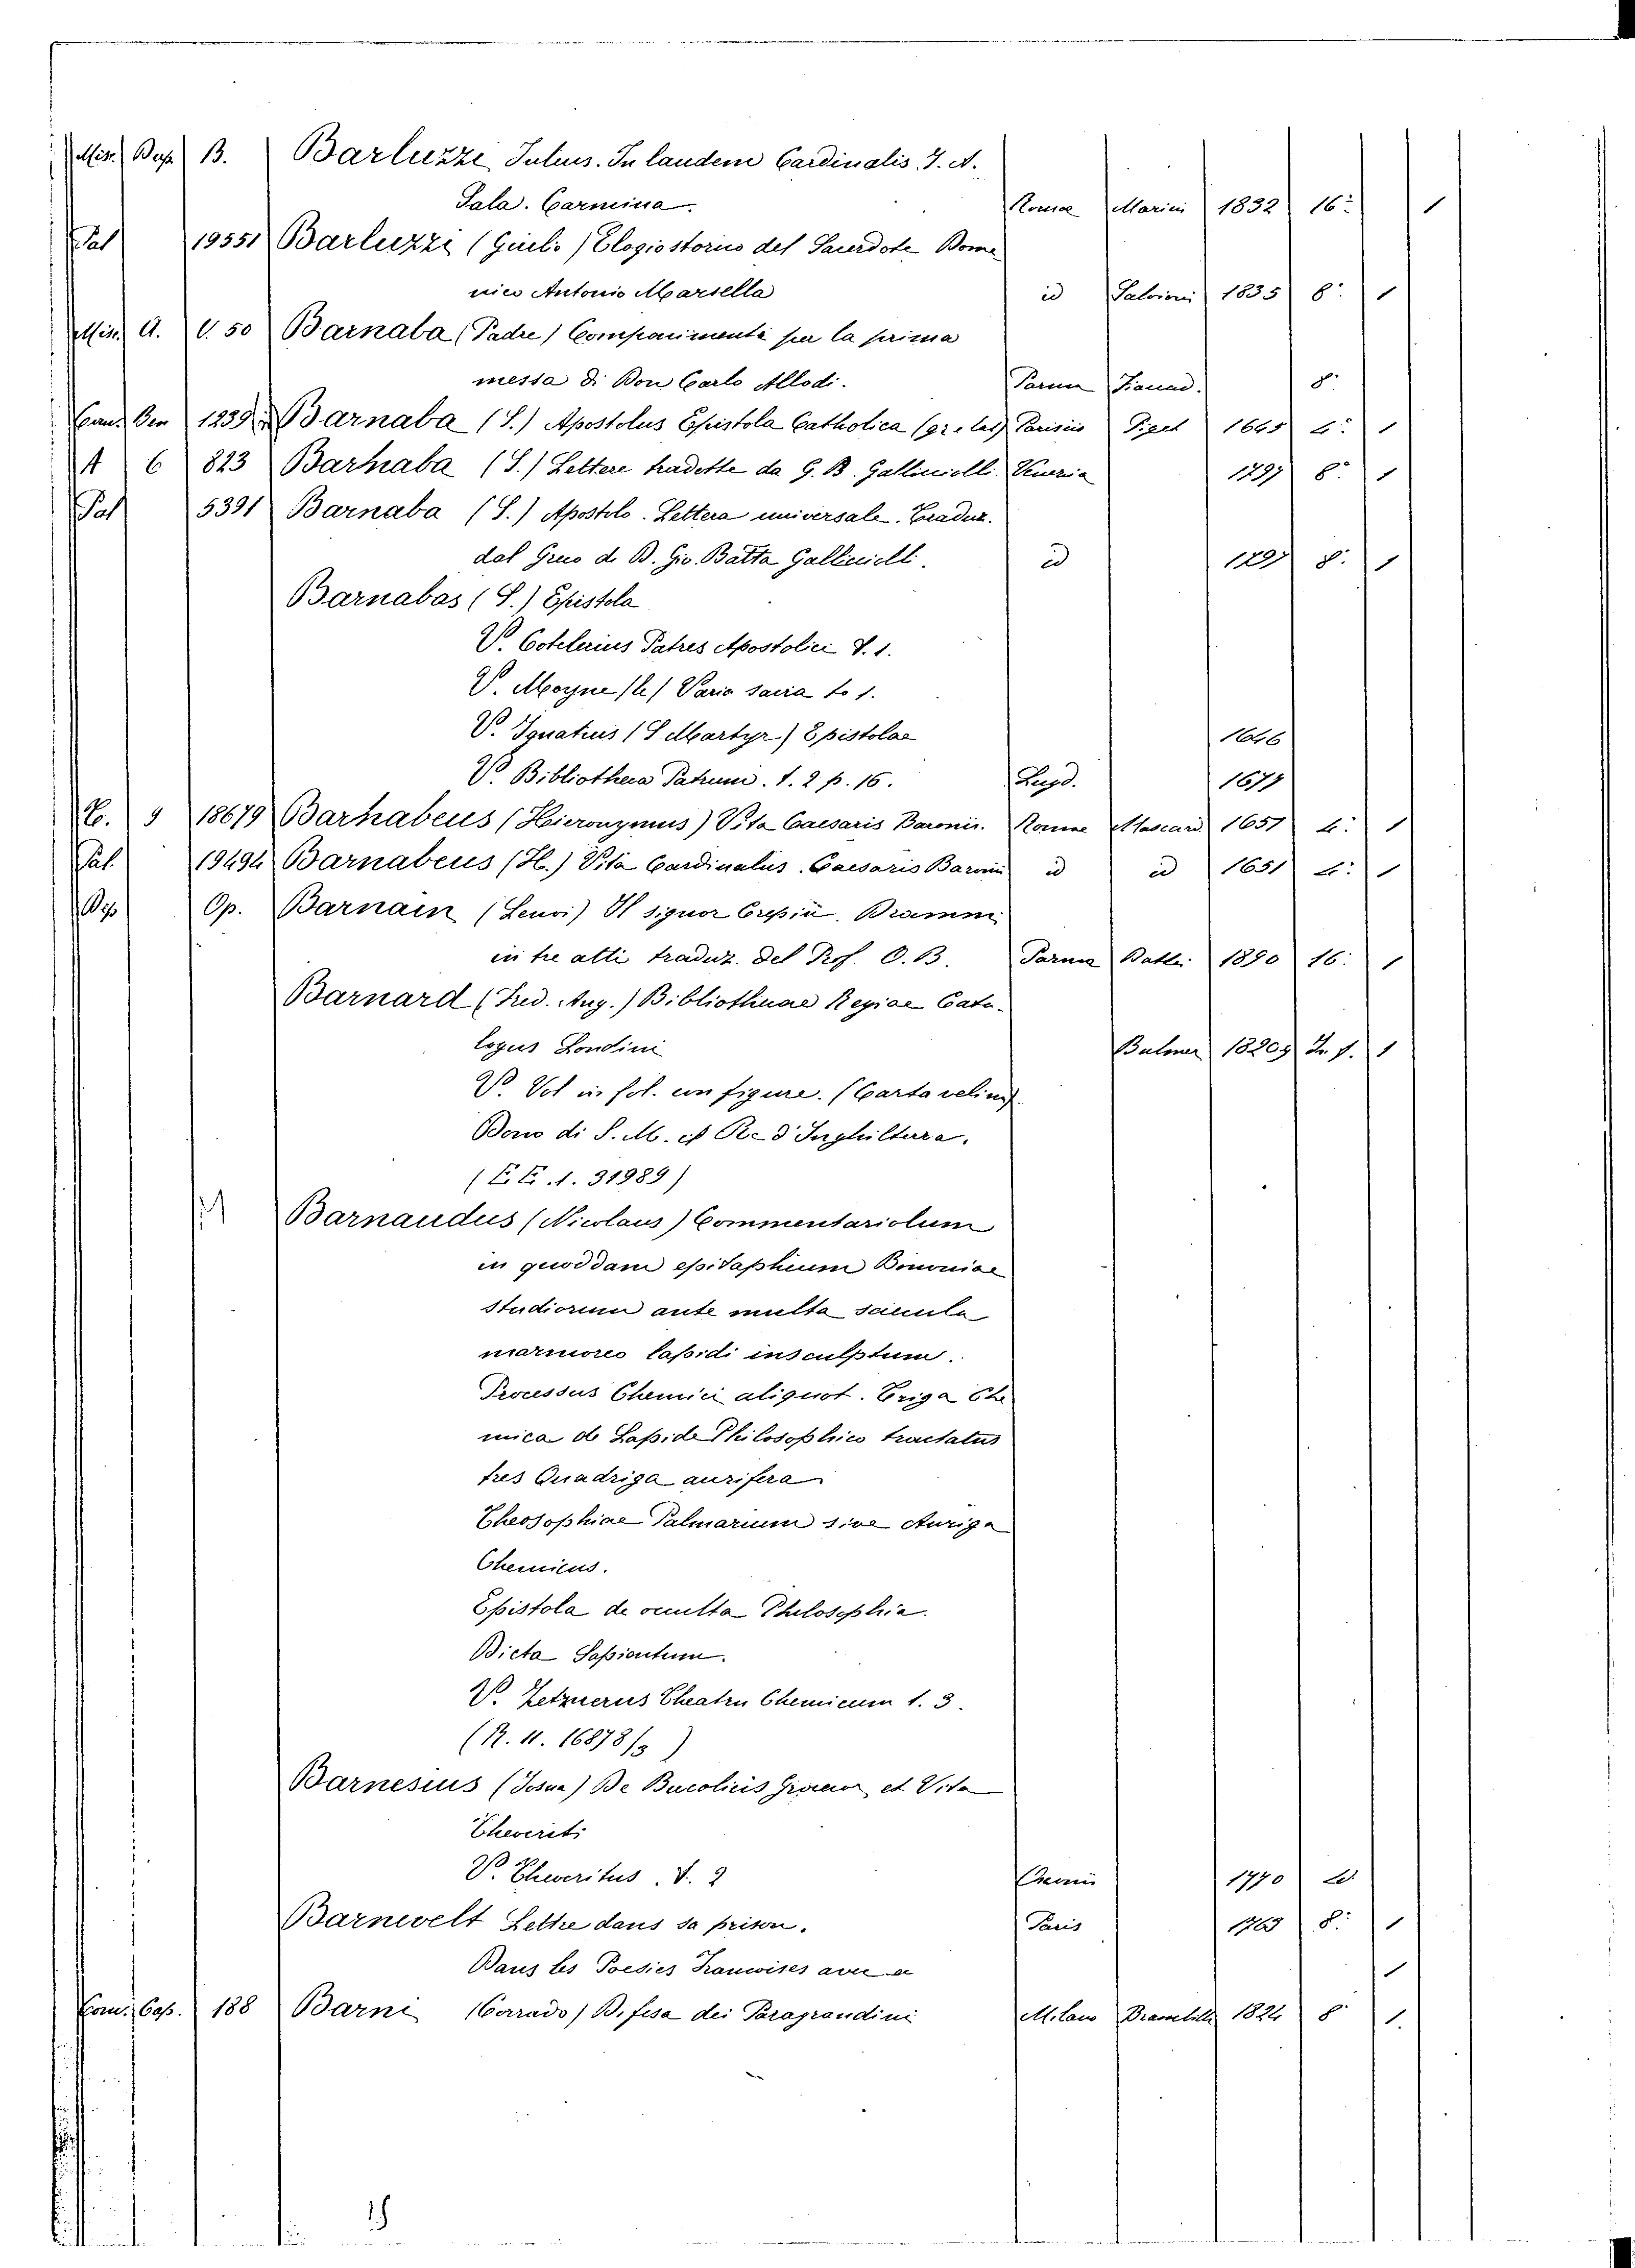 Misc. B. Barluzzi Julius. In laudem Cardinalis J. A.
Sala. Carmina. Romae Marini 1832 16: 1
Pal 19551 Barluzzi (Giulio) Elogio storico del Sacerdote Dome
nico Antonio Marsella id Salvioni 1835 8: 1
Misc. A. 50 Barnaba (Padre) Componimenti per la prima
messa di Don Carlo Allodi. Parma 8:
1239 Barnaba (S.) Apostolus Epistola Catholica (gr. e lat) Parisiis Piget 1645 4: 1
A 6 823 Barnaba (S.) Lettere tradotte da G. B. Gallicciolli. Venezia 1797 8: 1
Pal 5391 Barnaba (S.) Apostolo. Lettera universale. Traduz.
dal Greco di D. Gio. Batta Gallicciolli. id 1797 8: 1
Barnabas (S.) Epistola
V. Cotelerius Patres Apostolici T. 1.
V. Moyne (le) Varia sacra to 1.
V. Ignatius (S. Martyr.) Epistolae 1646
V. Bibliotheca Patrum. t. 2 p. 16. Lugd. 1677
9 18679 Barnabeus (Hieronymus) Vita Caesaris Baronii. Romae Mascard 1651 4: 1
Pal. 19494 Barnabeus (H.) Vita Cardinalis Caesaris Baronii id id 1651 4: 1
Op. Barnain (Lenoi) Il signor Crepin. Dramma
in tre atti traduz. del Prof. O. B. Parma Battei 1890 16: 1
Barnard (Fred. Aug.) Bibliothecae Regiae Cata-
logus Londini Bulmer 1820 1
V. Vol in fol. con figure. (Carta velina)
Dono di S. M. il Re d'Inghilterra.
(E. E. 1. 31989)
Barnaudus (Nicolaus) Commentariolum
in quoddam epitaphium Bononiae
studiorum ante multa saecula
marmoreo lapidi insculptum.
Processus Chemici aliquot. Triga Che
mica de Lapide Philosophico tractatus
tres Quadriga aurifera
Theosophiae Palmarium sive Auriga
Chemicus.
Epistola de occulta Philosophia.
Dicta Sapientum.
V. Zetznerus Theatrum Chemicum t. 3.
(R. 11. 16878/3)
Barnesius (Josua) De Bucolicis Graecor et Vita
Theocriti
V. Theocritus. T. 2 Oxonii 1770 4:
Barnevelt Lettre dans sa prison. Paris 1763 8: 1
Dans les Poesies Francoises 1
Com. Cap. 188 Barni (Corrado) Difesa dei Paragrandini Milano Brambilla 1824 8 1.
18